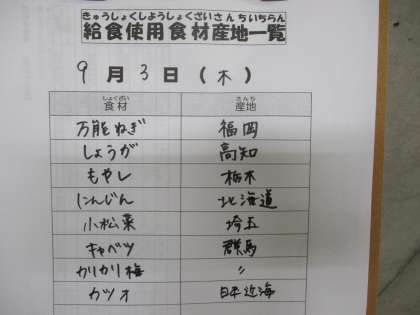 きゅうしょくしようしょくざいさんちいちらん
給食使用食材産地一覧
9月3日(木)
しょくざい さんち
食材 産地
万能ねぎ 福岡
しょうが 高知
もやし 栃木
にんじん 北海道
小松菜 埼玉
キャベツ 群馬
カリカリ梅 〃
カツオ 日本近海